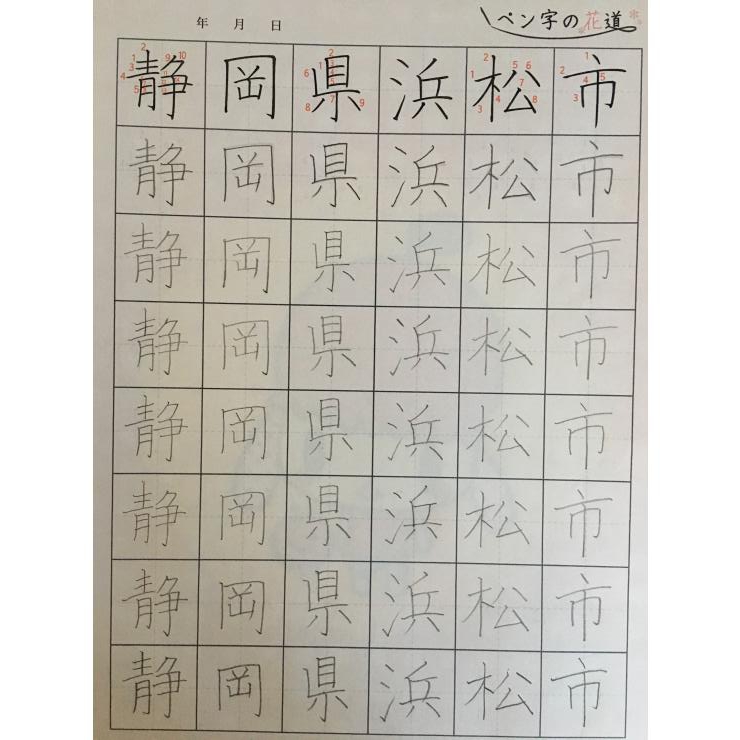 年 月 日
ペン字の花道
静岡県浜松市
静岡県浜松市
静岡県浜松市
静岡県浜松市
静岡県浜松市
静岡県浜松市
静岡県浜松市
静岡県浜松市